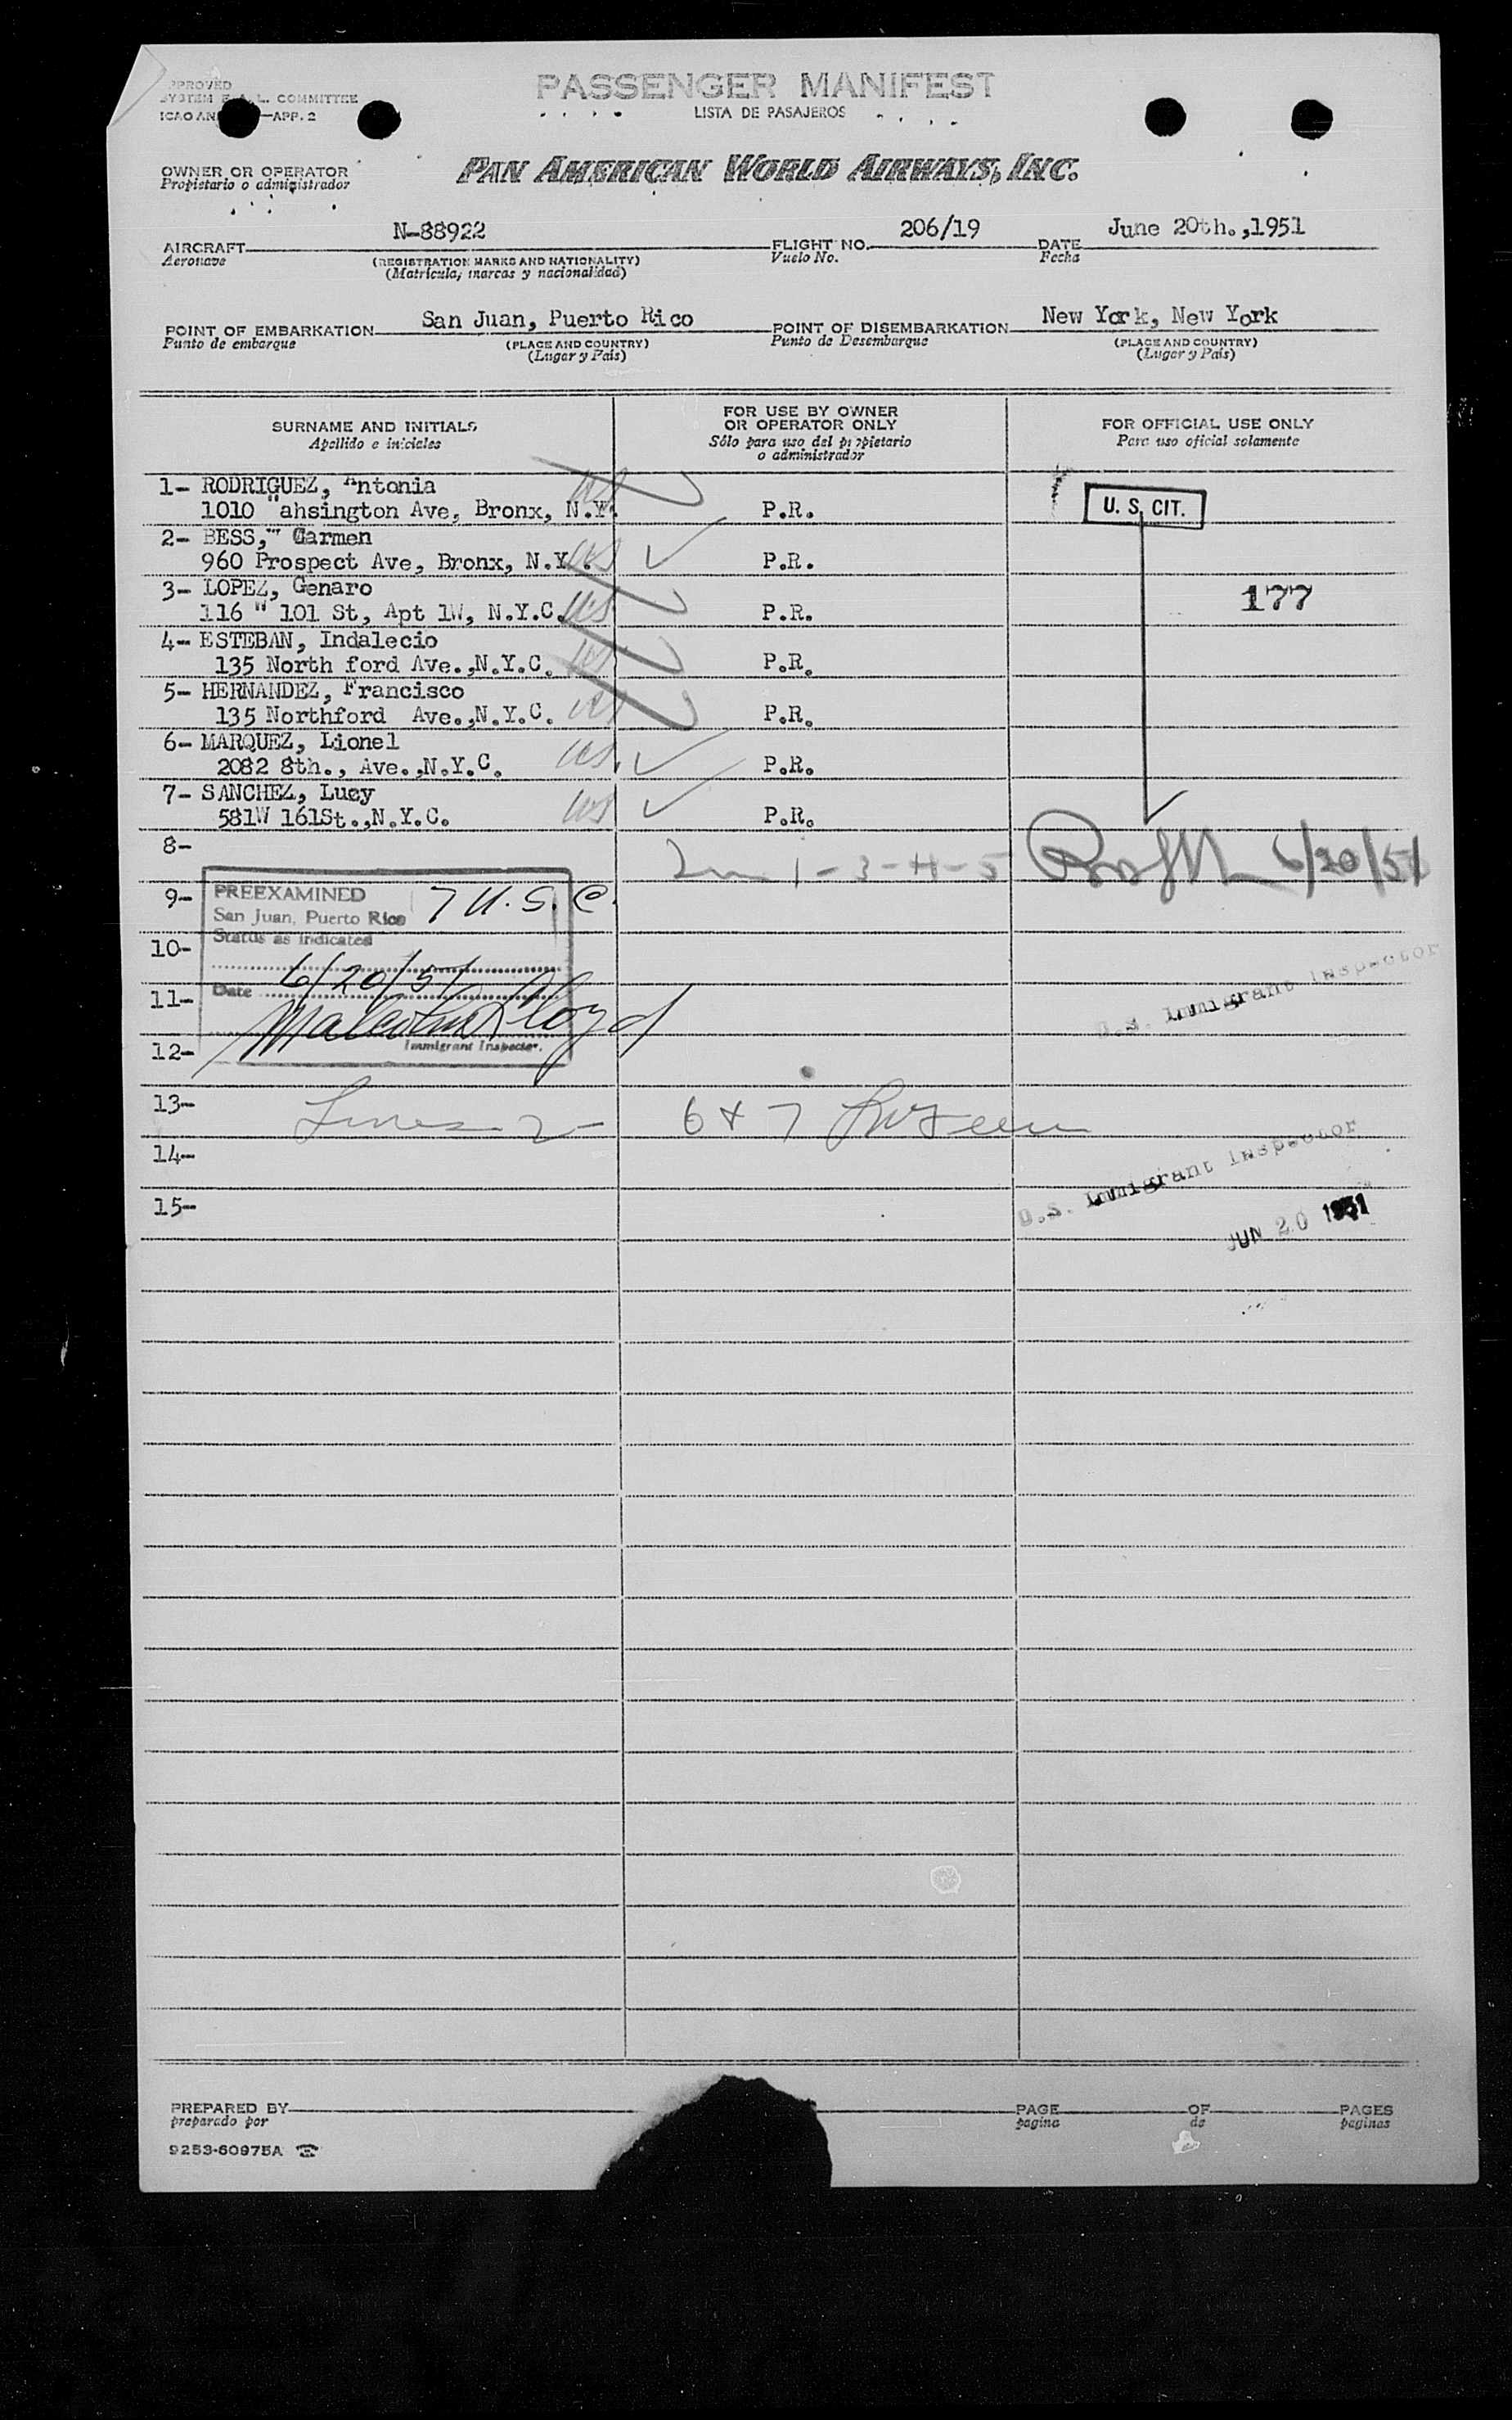 APPROVED
SYSTEM F.A.L. COMMITTEE
ICAO AN —APP. 2
PASSENGER MANIFEST
LISTA DE PASAJEROS
OWNER OR OPERATOR
Propietario o administrador
PAN AMERICAN WORLD AIRWAYS, INC.
AIRCRAFT N-88922 FLIGHT NO. 206/19 DATE June 20th.,1951
Aeronave (REGISTRATION MARKS AND NATIONALITY) Vuelo No. Fecha
(Matrícula, marcas y nacionalidad)
POINT OF EMBARKATION San Juan, Puerto Rico POINT OF DISEMBARKATION New York, New York
Punto de embarque (PLACE AND COUNTRY) Punto de Desembarque (PLACE AND COUNTRY)
(Lugar y País) (Lugar y País)
SURNAME AND INITIALS
Apellido e iniciales
FOR USE BY OWNER
OR OPERATOR ONLY
Sólo para uso del propietario
o administrador
FOR OFFICIAL USE ONLY
Para uso oficial solamente
1- RODRIGUEZ, Antonia
1010 Wahsington Ave, Bronx, N.Y. US P.R.
U. S. CIT.
2- BESS, Carmen
960 Prospect Ave, Bronx, N.Y. US P.R.
3- LOPEZ, Genaro
116 W 101 St, Apt 1W, N.Y.C. US P.R.
177
4- ESTEBAN, Indalecio
135 North ford Ave.,N.Y.C. US P.R.
5- HERNANDEZ, Francisco
135 Northford Ave.,N.Y.C. US P.R.
6- MARQUEZ, Lionel
2082 8th., Ave.,N.Y.C. US P.R.
7- SANCHEZ, Lucy
581W 161St.,N.Y.C. US P.R.
8-
1-3-4-5 6/20/51
9- PREEXAMINED 7 U.S.C.
San Juan, Puerto Rico
10- Status as indicated
Date 6/20/51
11- Malcolm Lloyd
12- Immigrant Inspector.
U.S. Immigrant Inspector
13- Lines 2- 6 & 7
14-
U.S. Immigrant Inspector
15-
JUN 20 1951
PREPARED BY PAGE OF PAGES
preparado por pagina de paginas
9253-60975A